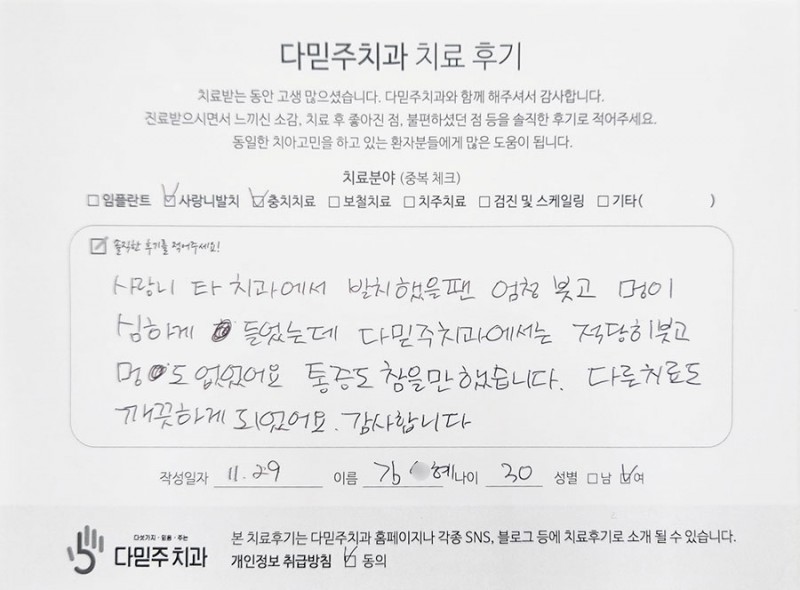 다믿주치과 치료 후기
치료받는 동안 고생 많으셨습니다. 다믿주치과와 함께 해주셔서 감사합니다.
진료받으시면서 느끼신 소감, 치료 후 좋아진 점, 불편하셨던 점 등을 솔직한 후기로 적어주세요.
동일한 치아고민을 하고 있는 환자분들에게 많은 도움이 됩니다.
치료분야 (중복 체크)
☐ 임플란트 ☑ 사랑니발치 ☑ 충치치료 ☐ 보철치료 ☐ 치주치료 ☐ 검진 및 스케일링 ☐ 기타( )
☑ 솔직한 후기를 적어주세요!
사랑니 타 치과에서 발치했을땐 엄청 붓고 멍이
심하게 들었는데 다믿주치과에서는 적당히붓고
멍도 없었어요 통증도 참을만했습니다. 다른치료도
깨끗하게 되었어요. 감사합니다
작성일자 11.29 이름 김 혜 나이 30 성별 ☐ 남 ☑ 여
다섯가지·믿음·주는
다믿주치과
본 치료후기는 다믿주치과 홈페이지나 각종 SNS, 블로그 등에 치료후기로 소개 될 수 있습니다.
개인정보 취급방침 ☑ 동의